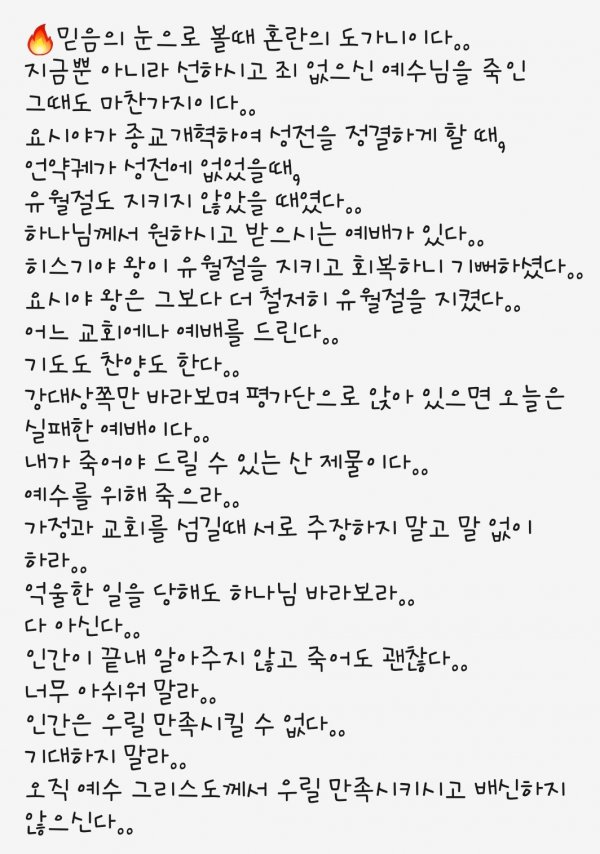 🔥믿음의 눈으로 볼때 혼란의 도가니이다。。
지금뿐 아니라 선하시고 죄 없으신 예수님을 죽인
그때도 마찬가지이다。。
요시야가 종교개혁하여 성전을 정결하게 할 때,
언약궤가 성전에 없었을때,
유월절도 지키지 않았을 때였다。。
하나님께서 원하시고 받으시는 예배가 있다。。
히스기야 왕이 유월절을 지키고 회복하니 기뻐하셨다。。
요시야 왕은 그보다 더 철저히 유월절을 지켰다。。
어느 교회에나 예배를 드린다。。
기도도 찬양도 한다。。
강대상쪽만 바라보며 평가단으로 앉아 있으면 오늘은
실패한 예배이다。。
내가 죽어야 드릴 수 있는 산 제물이다。。
예수를 위해 죽으라。。
가정과 교회를 섬길때 서로 주장하지 말고 말 없이
하라。。
억울한 일을 당해도 하나님 바라보라。。
다 아신다。。
인간이 끝내 알아주지 않고 죽어도 괜찮다。。
너무 아쉬워 말라。。
인간은 우릴 만족시킬 수 없다。。
기대하지 말라。。
오직 예수 그리스도께서 우릴 만족시키시고 배신하지
않으신다。。